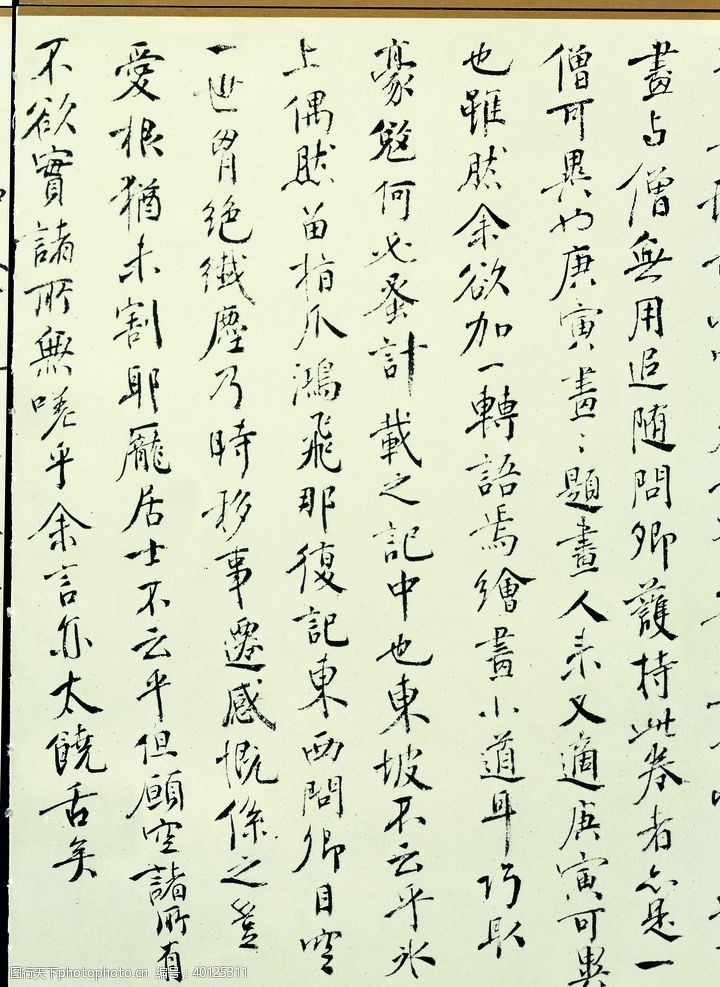 畫与僧無用追随問卿護持此卷者亦是一
僧可異也庚寅畫〻題畫人来又適庚寅可異
也雖然余欲加一轉語焉繪畫小道耳巧取
豪何必蚤計載之記中也東坡不云乎氷
上偶然畱指爪鴻飛那復記東西問卿目空
一世胷絶纖塵乃時移事遷感慨係之豈
愛根猶未割耶龐居士不云乎但願空諸所有
不欲實諸所無嗟乎余言亦太饒舌矣
图行天下photophoto.cn 编号:40125311